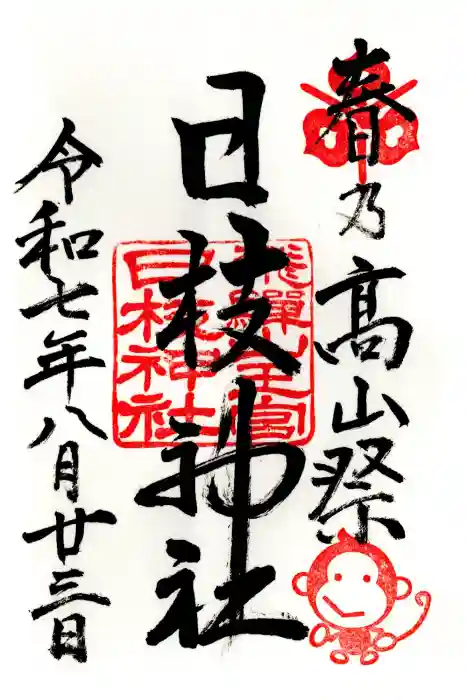 春乃高山祭
日枝神社
飛騨山王宮
日枝神社
令和七年八月廿三日